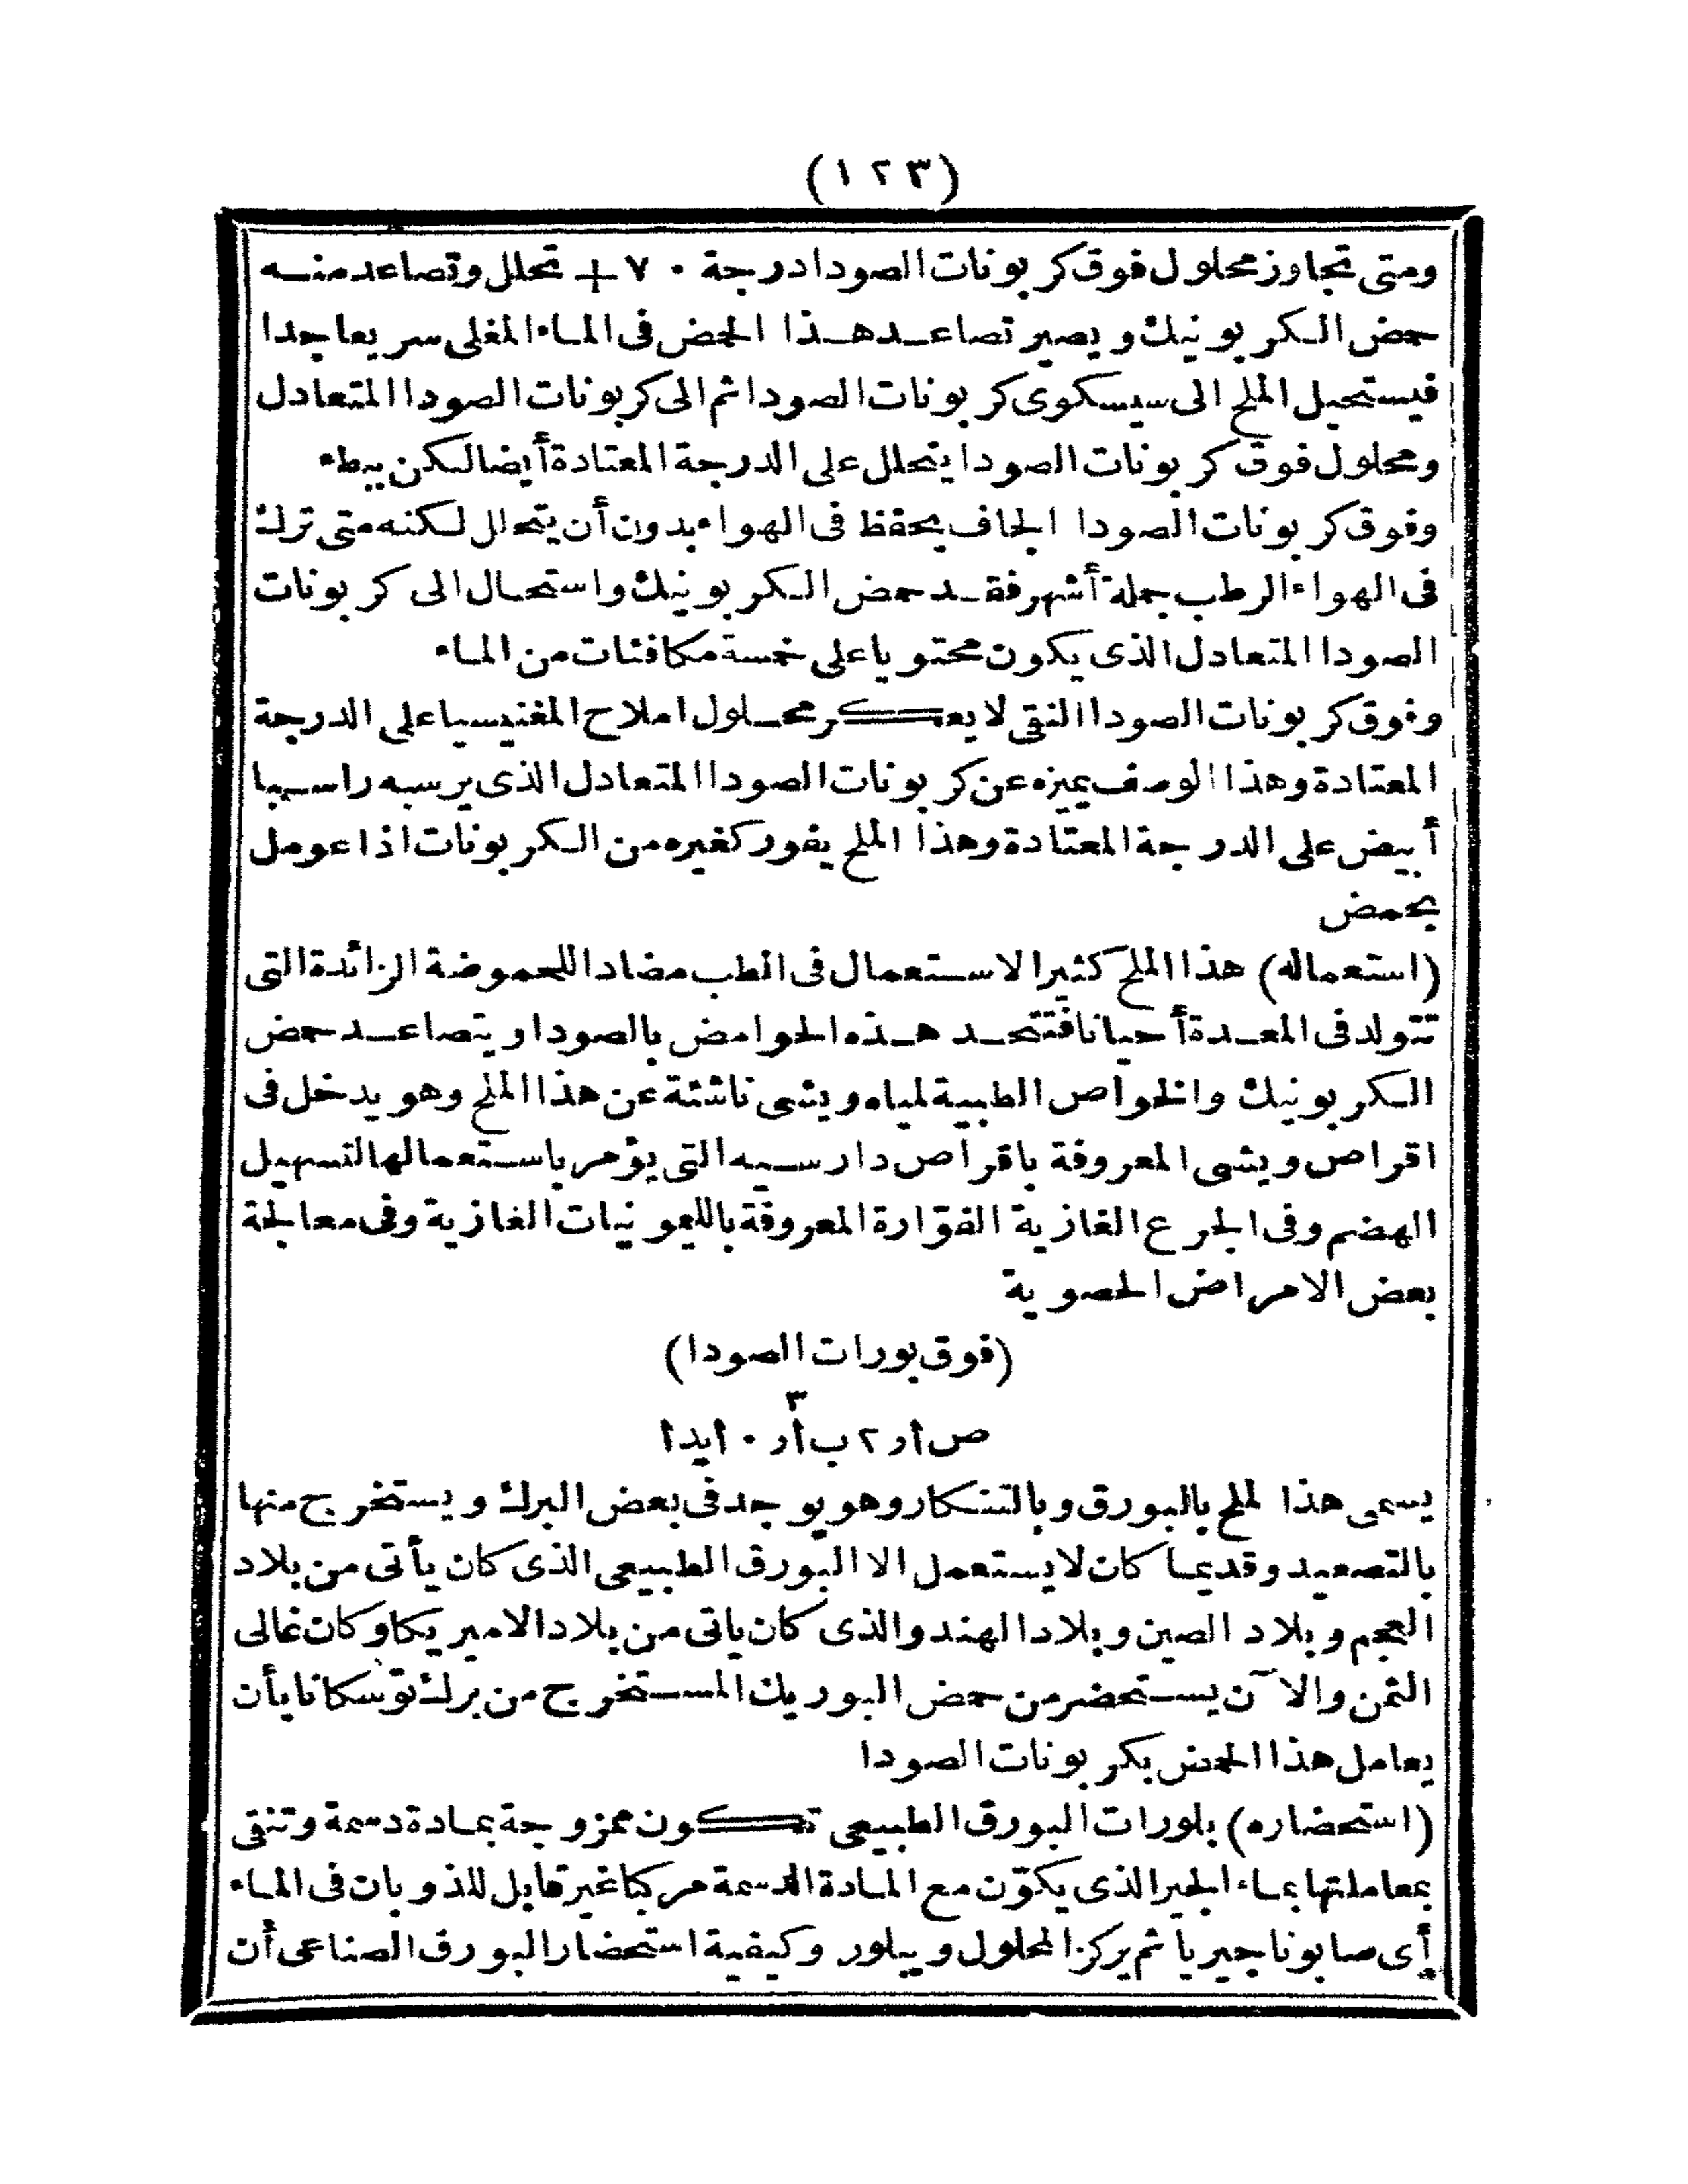 (١٢٣)
ومتى تجاوز محلول فوق كربونات الصودا درجة ٧٠ + تحلل وتصاعد منه
حمض الكربونيك ويصير تصاعد هذا الحمض فى الماء المغلى سريعا جدا
فيستحيل الملح الى سيسكوى كربونات الصودا ثم الى كربونات الصودا المتعادل
ومحلول فوق كربونات الصودا يتحلل على الدرجة المعتادة أيضا لكن ببطء
وفوق كربونات الصودا الجاف يحفظ فى الهواء بدون أن يتحالل لكنه متى ترك
فى الهواء الرطب جملة أشهر فقد حمض الكربونيك واستحال الى كربونات
الصودا المتعادل الذى يكون محتويا على خمسة مكافئات من الماء
وفوق كربونات الصودا النقى لا يعكر محلول املاح المغنيسيا على الدرجة
المعتادة وهذا الوصف يميزه عن كربونات الصودا المتعادل الذى يرسبه راسبا
أبيض على الدرجة المعتادة وهذا الملح يفور كغيره من الكربونات اذا عومل
بحمض
(استعماله) هذا الملح كثير الاستعمال فى الطب مضادا للحموضة الزائدة التى
تتولد فى المعدة أحيانا فتتحد هذه الحوامض بالصودا ويتصاعد حمض
الكربونيك والخواص الطبية لمياه ويشى ناشئة عن هذا الملح وهو يدخل فى
اقراص ويشى المعروفة باقراص دارسيه التى يؤمر باستعمالها لتسهيل
الهضم وفى الجرع الغازية الفوّارة المعروفة بالليمونيات الغازية وفى معالجة
بعض الامراض الحصوية
(فوق بورات الصودا)
٣
ص أر ٢ ب أر ١٠ يد أ
يسمى هذا لملح بالبورق وبالتنكار وهو يوجد فى بعض البرك ويستخرج منها
بالتصعيد وقديما كان لا يستعمل الا البورق الطبيعى الذى كان يأتى من بلاد
العجم وبلاد الصين وبلاد الهند والذى كان ياتى من بلاد الاميريكا وكان غالى
الثمن والآن يستحضر من حمض البوريك المستخرج من برك توسكانا بأن
يعامل هذا الحمض بكربونات الصودا
(استحضاره) بلورات البورق الطبيعى تكون ممزوجة بمادة دسمة وتنقى
بمعاملتها بماء الجير الذى يكوّن مع المادة الدسمة مركبا غير قابل للذوبان فى الماء
أى صابونا جيريا ثم يركز المحلول ويبلور وكيفية استحضار البورق الصناعى أن